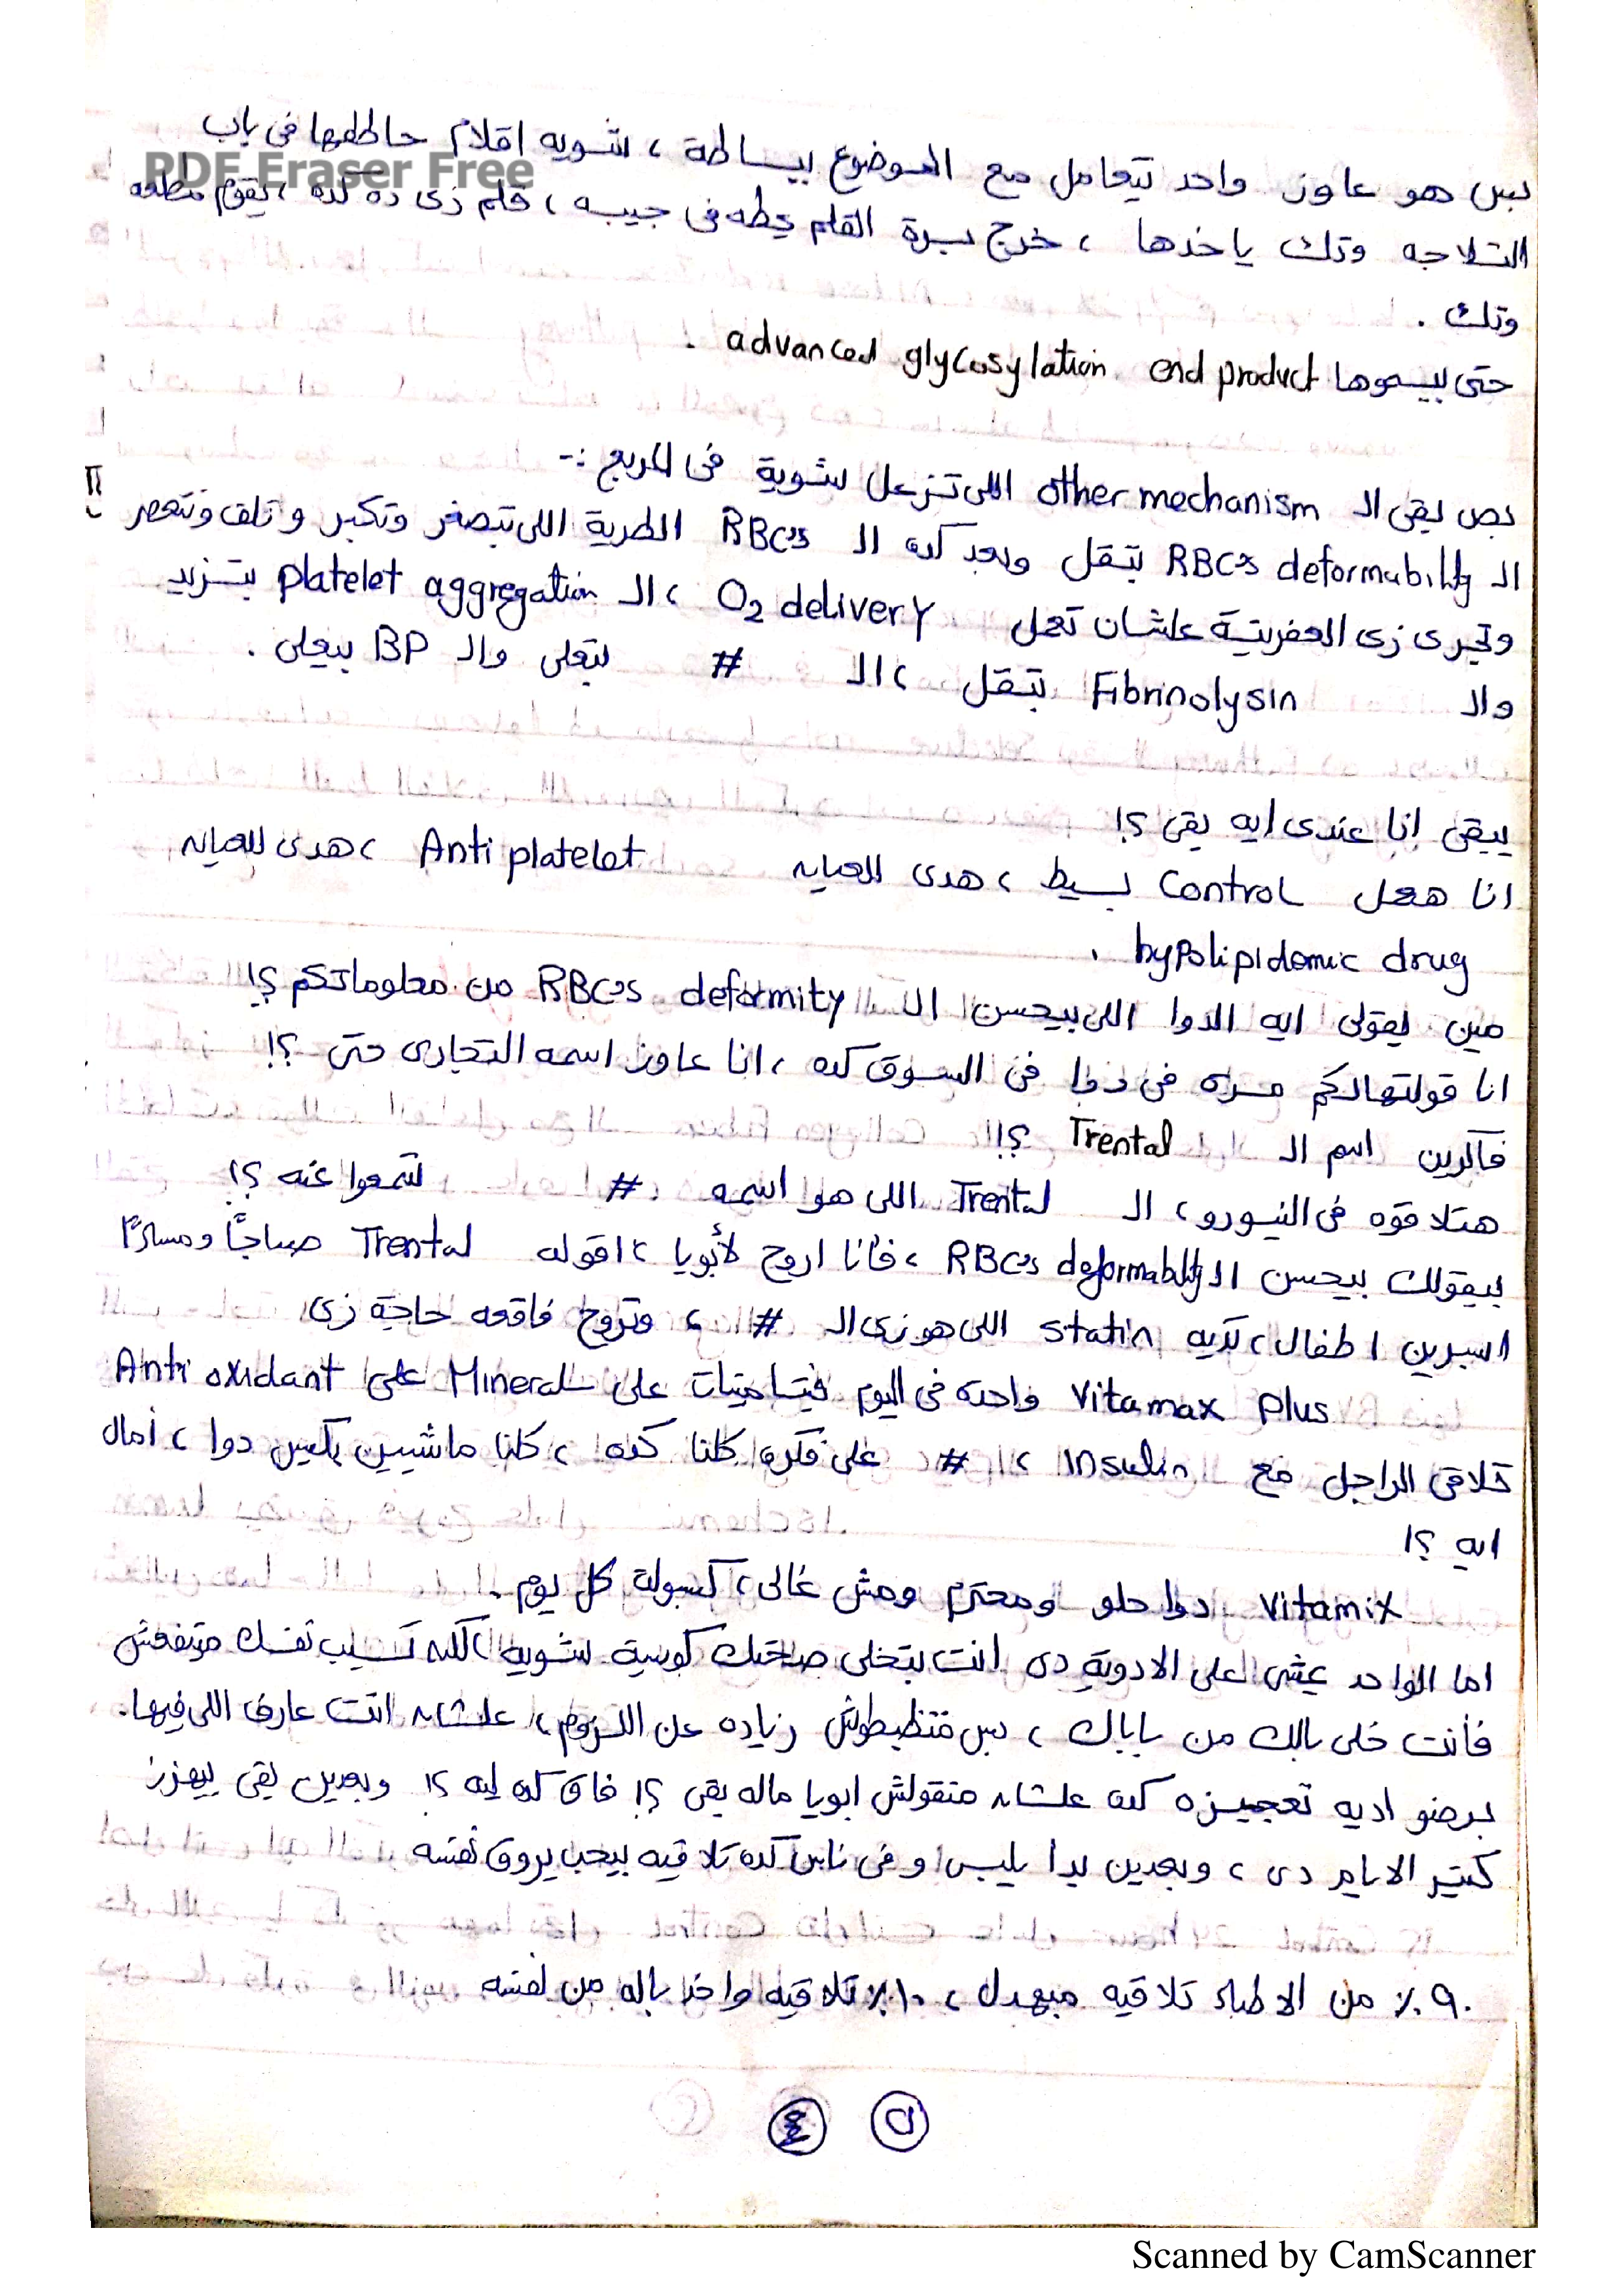 PDF Eraser Free
بس هو عاوز واحد يتعامل مع الموضوع ببساطة ، شويه اقلام حاططها فى باب
التلاجه وتك ياخدها ، خرج سيرة القلم يحطه فى جيبه ، قلم زى ده كده ، يقوم مطلعه
وتك .
حتى بيسموها advanced glycosylation end product .
بص بقى الـ other mechanism اللى تزعل شوية فى المربع :-
الـ RBC's deformability بتقل وبعد كده الـ RBC's الطرية اللى بتصغر وتكبر وتلف وتتعصر
وتجرى زى العفريتة علشان تعمل O2 delivery ، الـ platelet aggregation بتزيد
والـ Fibrinolysin بتقل ، الـ # بتعلى والـ BP بيعلى .
يبقى انا عندى ايه بقى ؟!
انا هعمل Control بسيط ، هدى للعيانه Antiplatelet ، هدى للعيانه
hypolipidemic drug .
مين يقولى ايه الدوا اللى بيحسن الـ RBC's deformity من معلوماتكم ؟!
انا قولتهالكم مره فى دوا فى السوق كده ، انا عاوز اسمه التجارى حتى ؟!
فاكرين اسم الـ Trental ؟!!
هتلاقوه فى النيورو ، الـ Trental اللى هو اسمه # تسمعوا عنه ؟!
بيقولك بيحسن الـ RBC's deformability ، فأنا اروح لأبويا ، اقوله Trental صباحًا ومساءً
اسبرين اطفال ، تديه statin اللى هو زى الـ # ، وتروح فاقعه حاجة زى
Vitamax plus واحده فى اليوم فيتامينات على Mineral على Anti oxidant
تلاقى الراجل مع Insulin ، # على فكره كلنا كده ، كلنا ماشيين بكيس دوا ، أمال
ايه ؟!
Vitamix دوا حلو ومحترم ومش غالى ، كبسولة كل يوم .
اما الواحد يمشى على الادوية دى انت بتخلى صحتك كويسة شويه ، لكن تسيب نفسك متنفعش
فأنت خلى بالك من باباك ، بس متظبطوش زياده عن اللزوم ، علشان انت عارف اللى فيها .
برضو اديه تعجيزه كده علشان متقولش ابويا ماله بقى ؟! فاق كده ليه ؟! وبعدين بقى بيهزر
كتير الايام دى ، وبعدين بدا يلبس و فى ناس كده تلاقيه بيحب يروق نفسه
٩٠٪ من الاطباء تلاقيه مبهدل ، ١٠٪ تلاقيه واخد باله من نفسه
Scanned by CamScanner